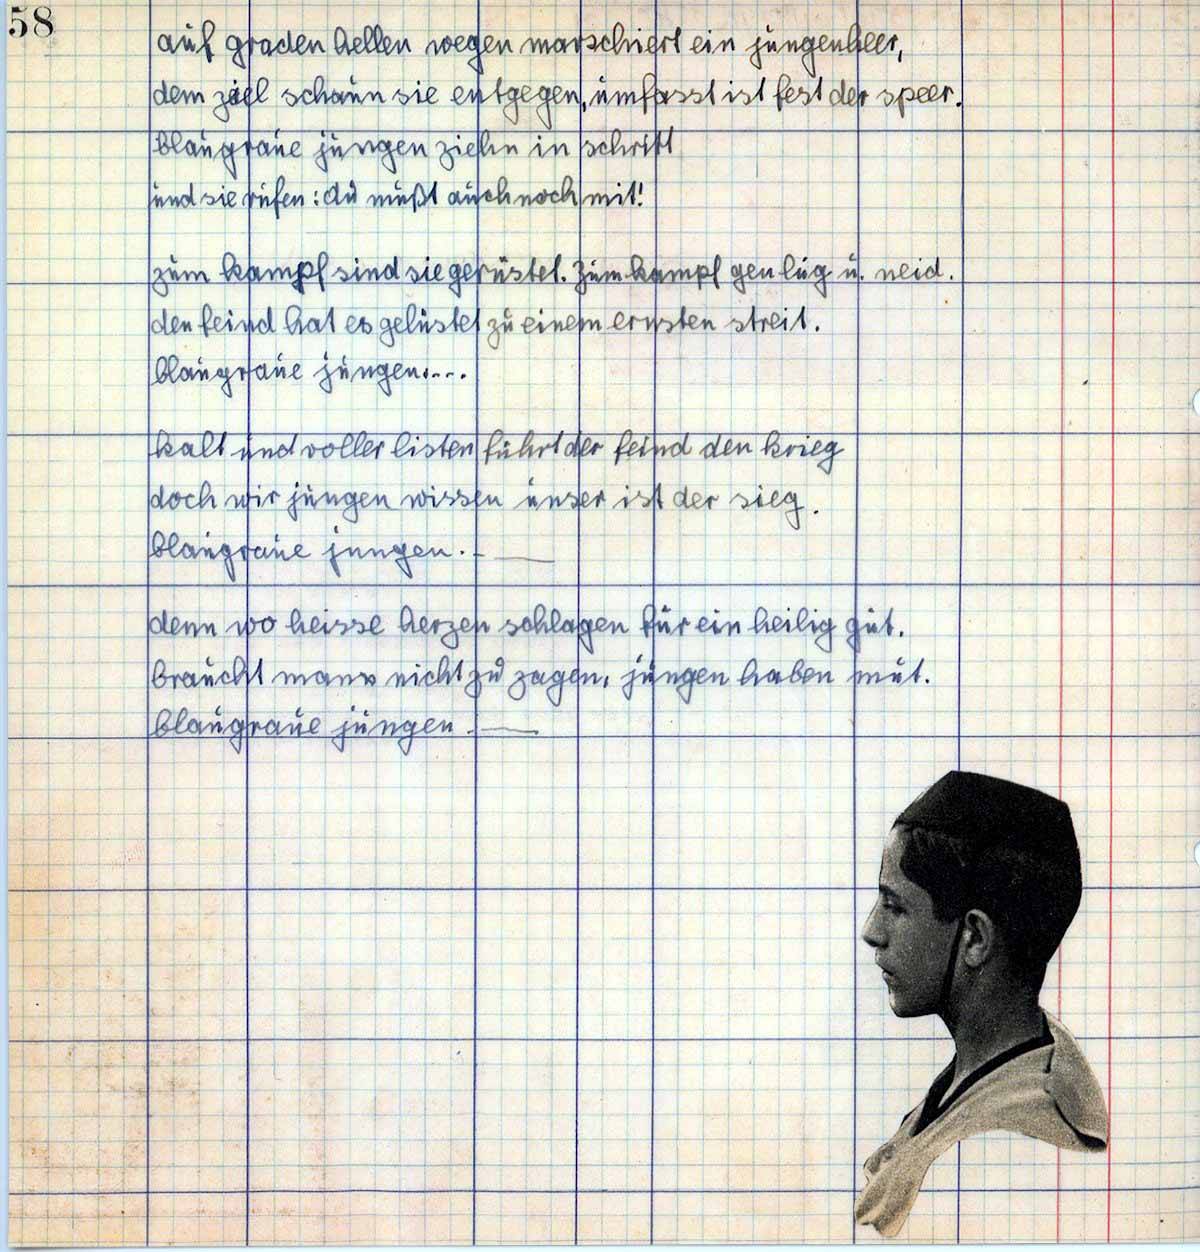 58
auf graden hellen wegen marschiert ein jungenheer,
dem ziel schaun sie entgegen, umfasst ist fest der speer.
blaugraue jungen ziehn in schritt
und sie rufen: du mußt auch noch mit!
zum kampf sind sie gerüstet. Zum kampf gen lug u. neid.
den feind hat es gelüstet zu einem ernsten streit.
blaugraue jungen....
kalt und voller listen führt der feind den krieg
doch wir jungen wissen unser ist der sieg.
blaugraue jungen. -
denn wo heisse herzen schlagen für ein heilig gut.
braucht mann nicht zu zagen, jungen haben mut.
blaugraue jungen.